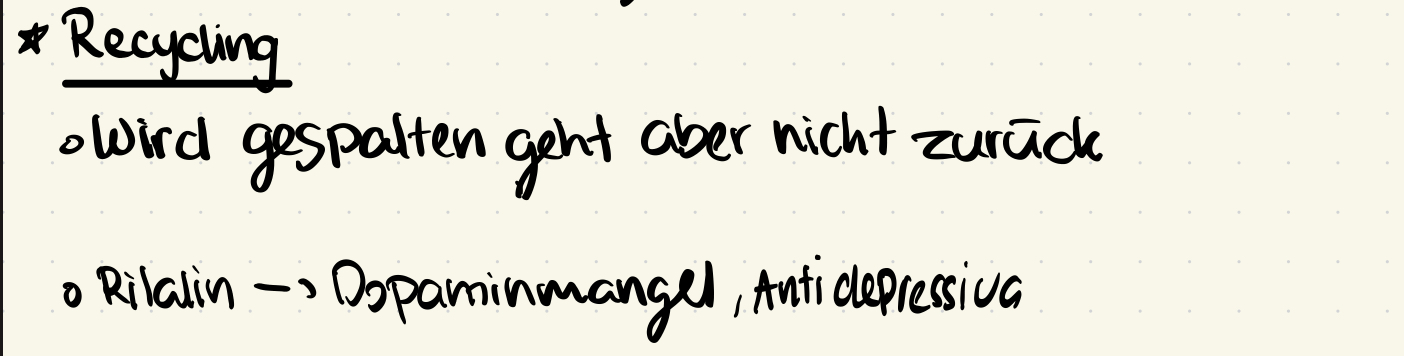 * Recycling
o Wird gespalten geht aber nicht zurück
o Rilalin –> Dopaminmangel, Antidepressiva